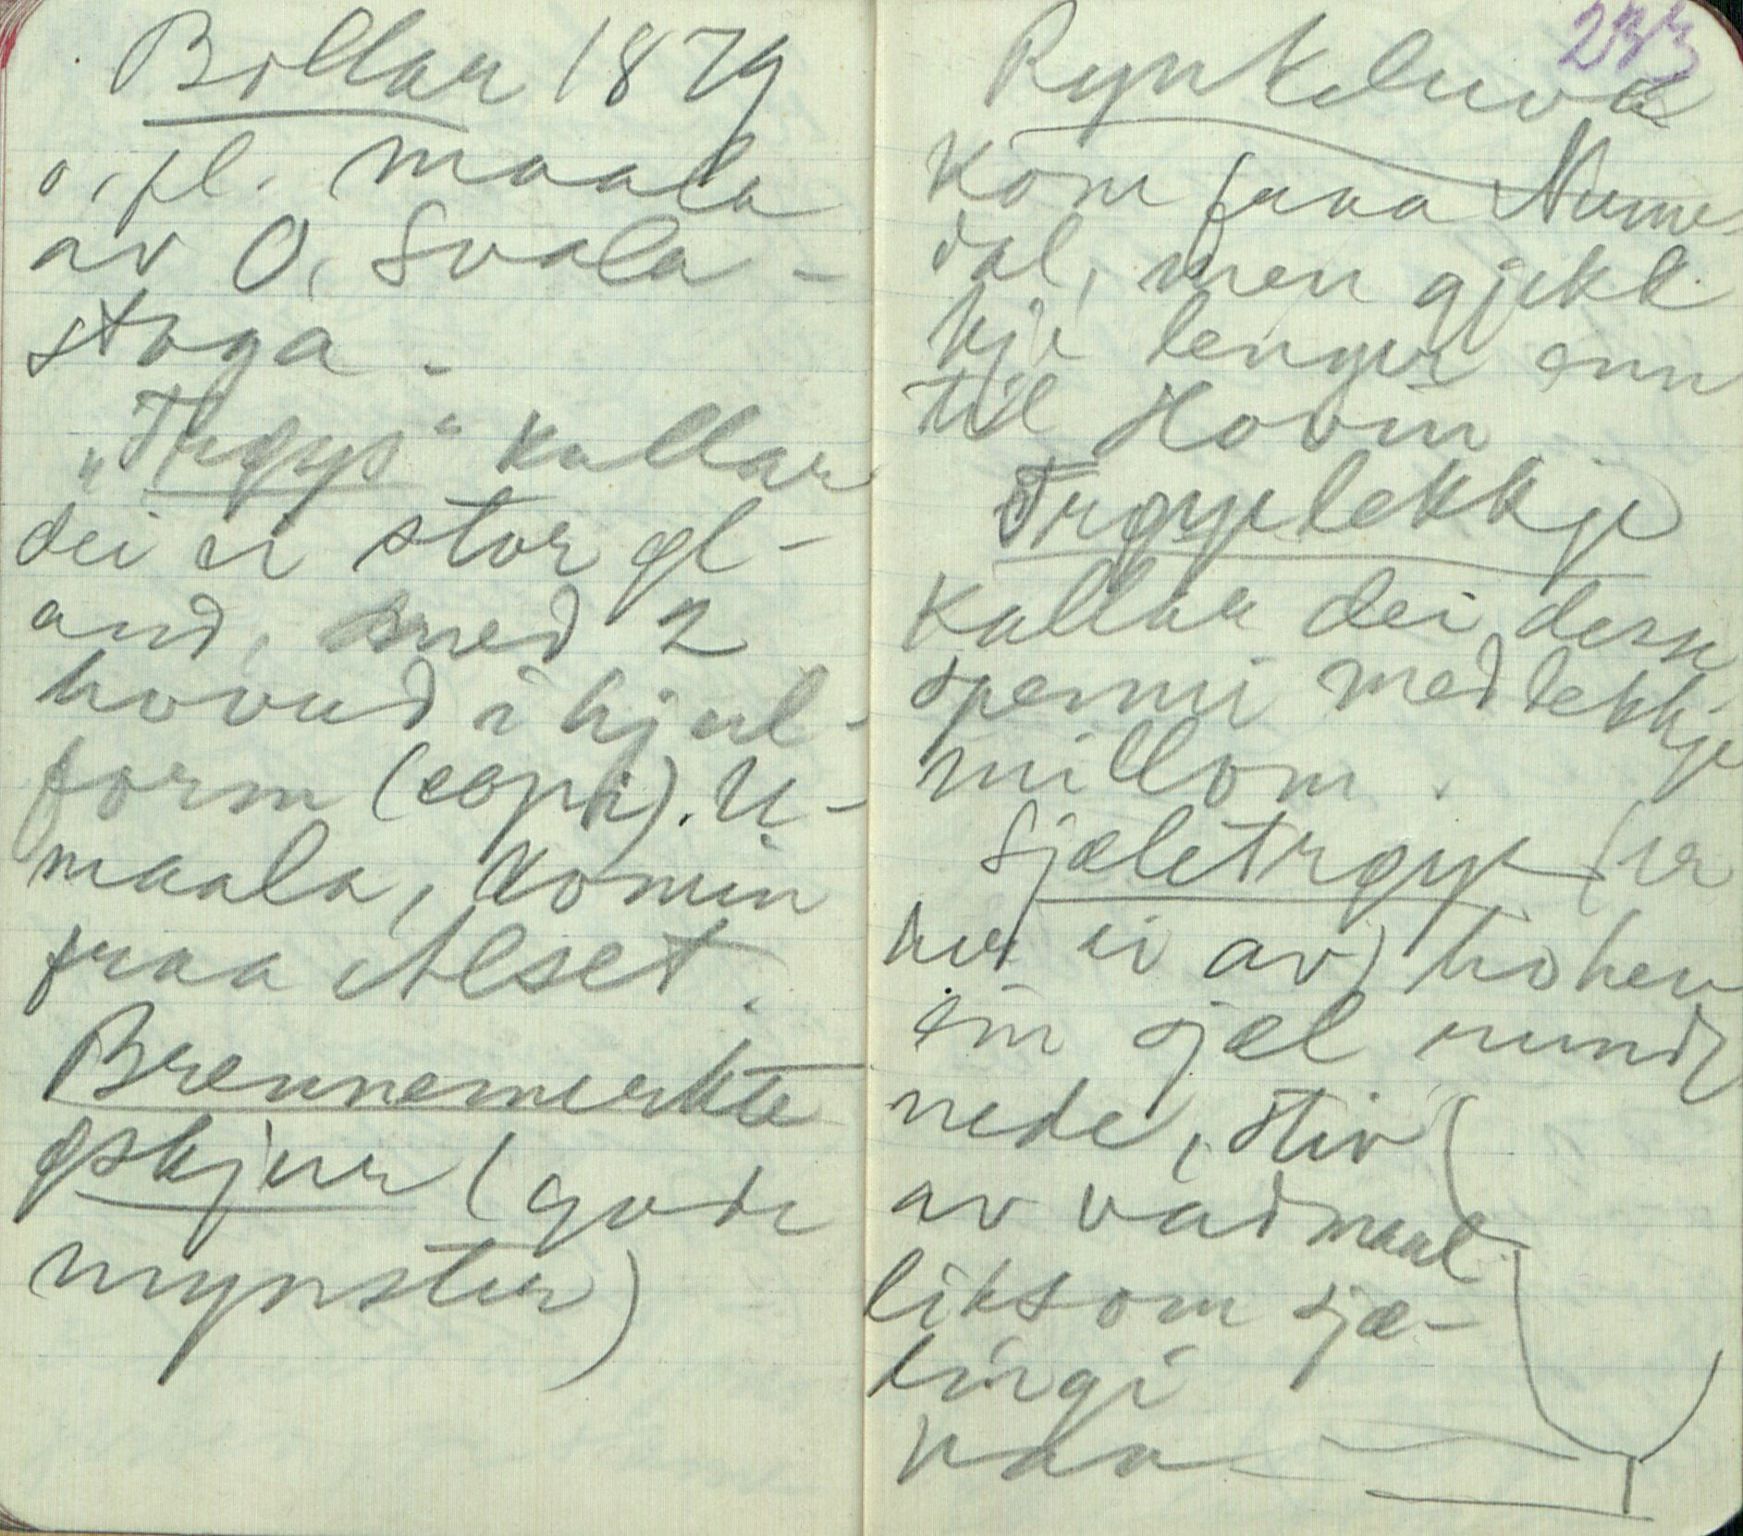 Bollar 1879
o, fl. maala
av O, Svala-
stoga.
"Trøys" kallar
dei ei stor øl-
and, med 2
hovud i hjul-
form (eopi). U-
maala, komin
fraa Alset.
Brennemerkte
øskjur (gode
mynster)
233
Rynkeluva
kom fraa Nume-
dal, men gjekk
kje lenger enn
til Hovin
Trøyelekkje
kallar dei desse
spenni med lekkje
millom.
Sjæletrøye (er
her ei av) hohev
ein sjæl rundt
nede, stiv
av vadmaal
liksom sjæ-
lingi